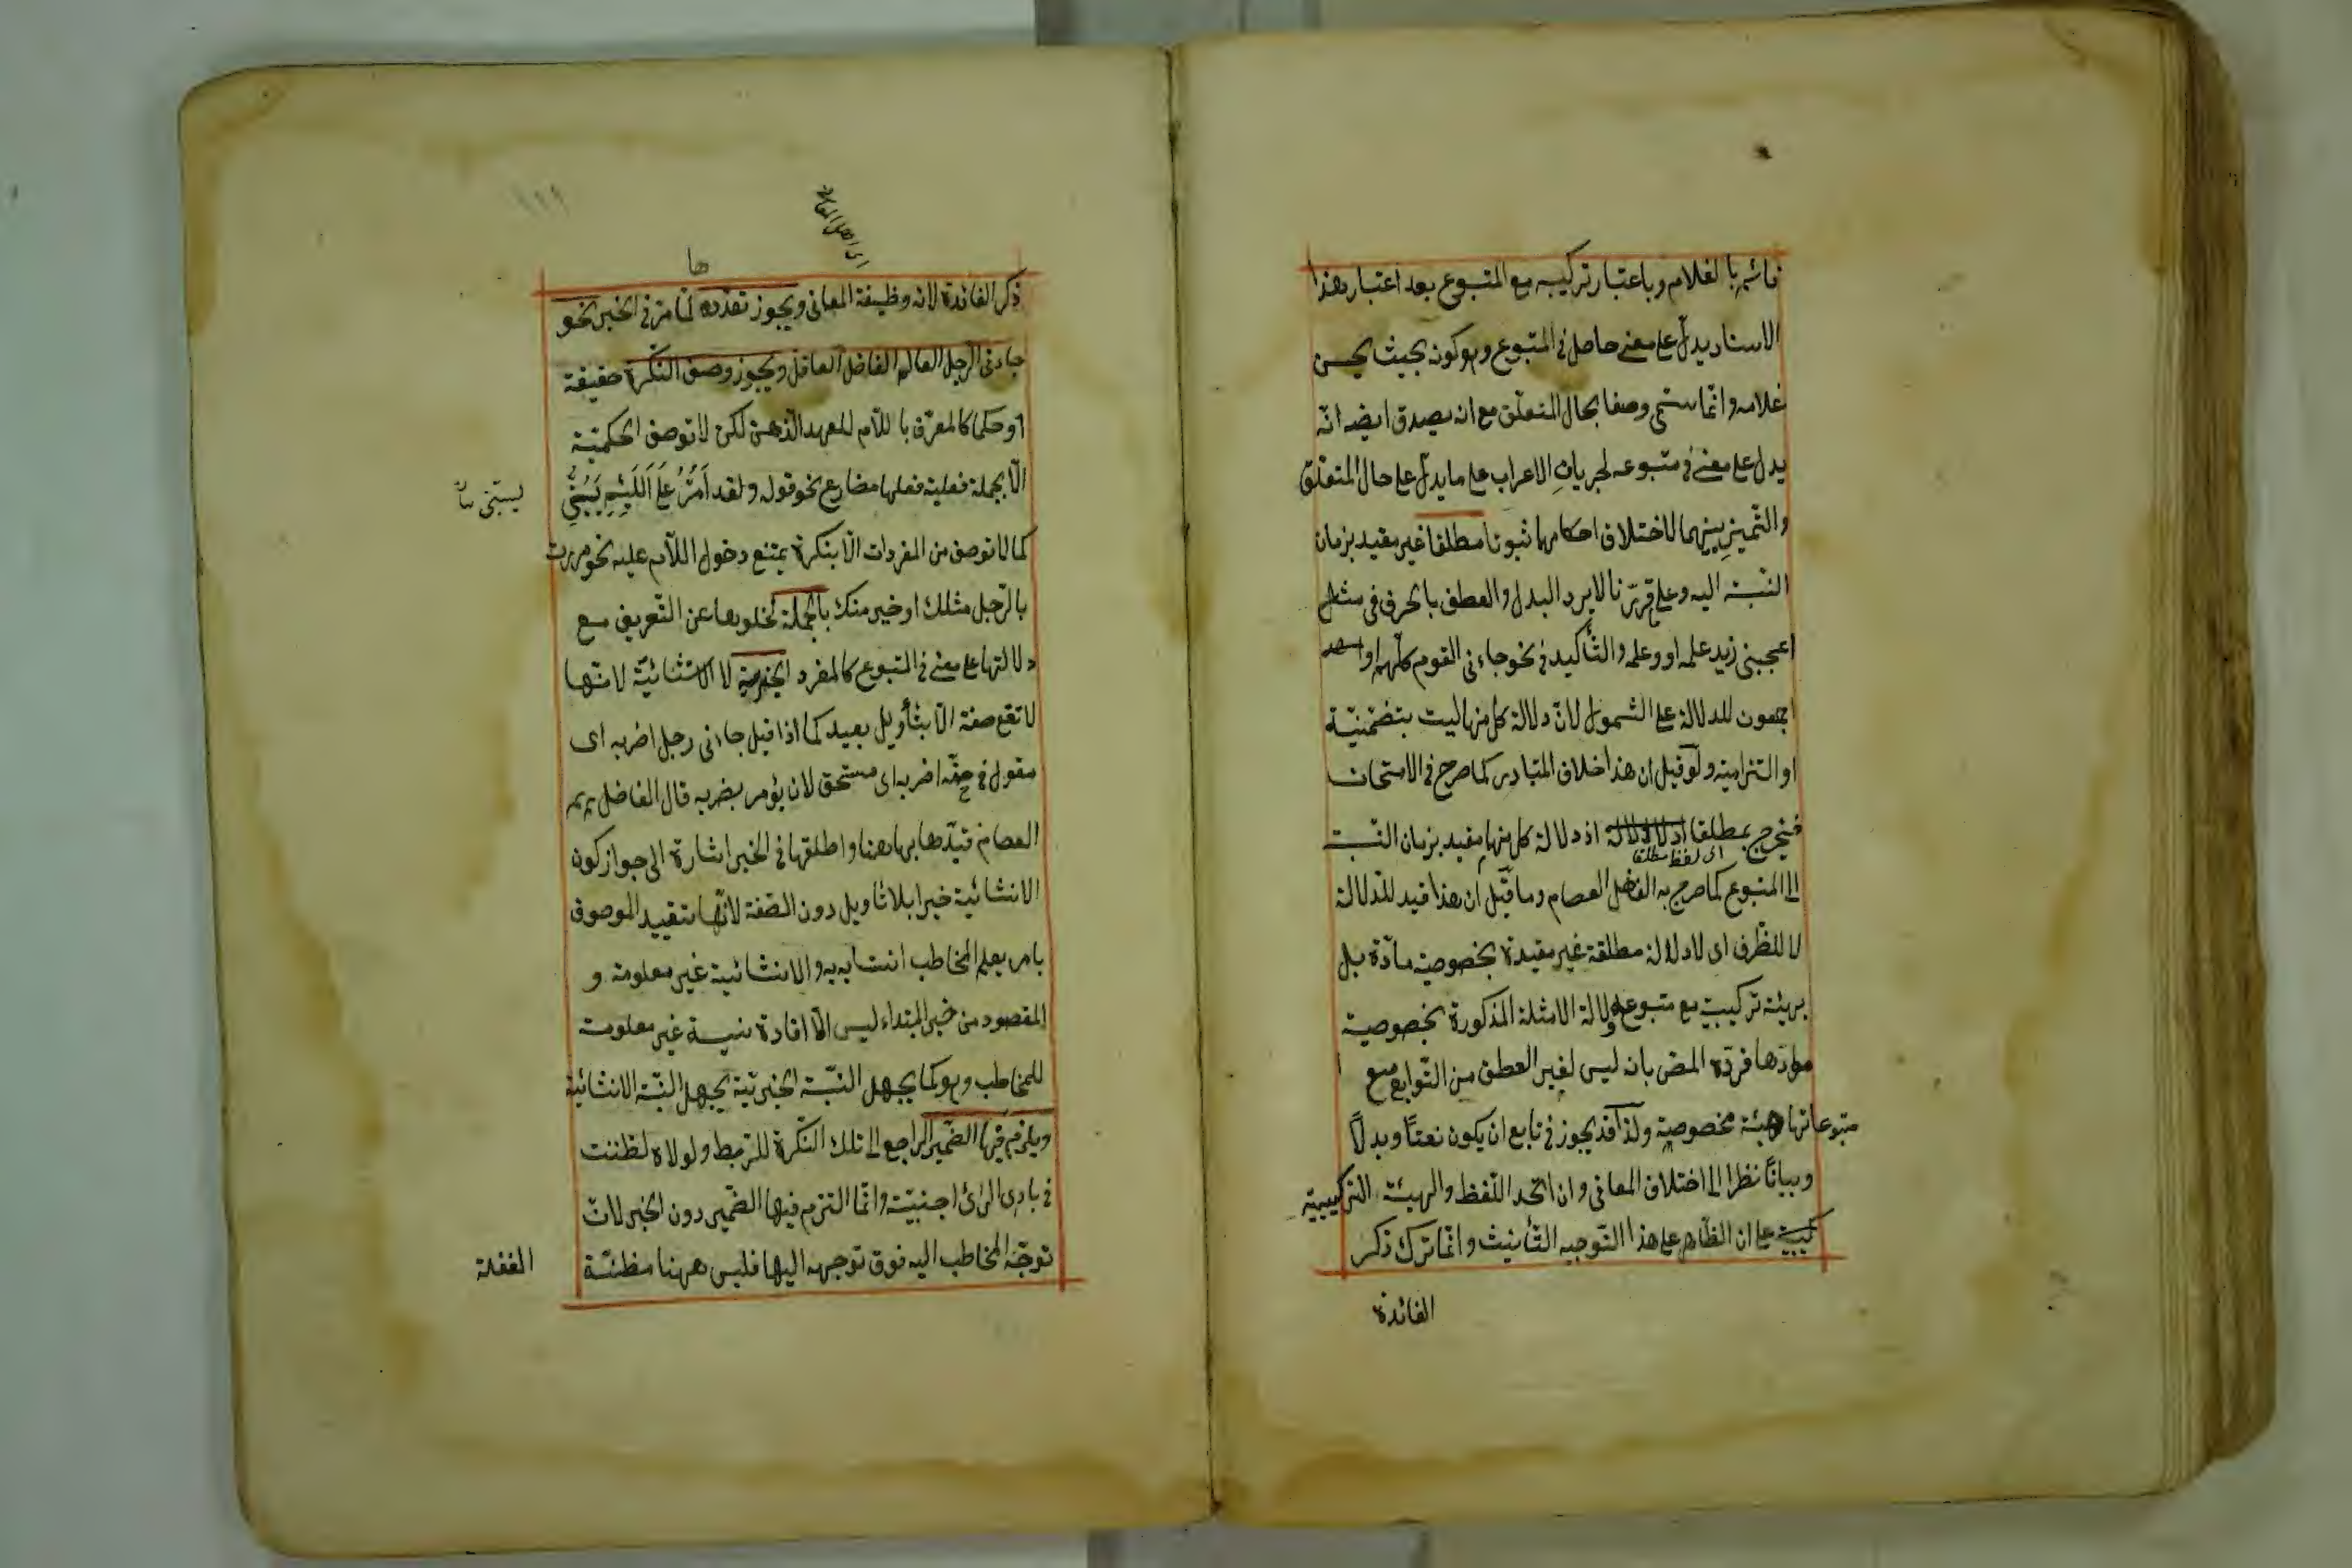 قائم بالغلام وباعتبار تركيبه مع المتبوع بعد اعتبار هذا
الاسناد يدل على معنى حاصل في المتبوع وهو كونه بحيث يحسن
غلامه وانما سمى وصفا بحال المتعلق مع ان يصدق ايضا انه
يدل على معنى في متبوعه لجريان الاعراب على ما يدل على حال المتعلق
والتمييز بينهما لاختلاف احكامهما ثبوتا مطلقا غير مقيد بزمان
النسبة اليه وعلى ما قررنا لا يرد البدل والعطف بالحرف في مثل
اعجبنى زيد علمه او وعلمه والتأكيد في نحو جاءنى القوم كلهم او
اجمعون للدلالة على الشمول لان دلالة كل منها ليست بتضمنية
او التزامية ولو قيل ان هذا خلاف المتبادر كما صرح في الامتحان
فيخرج بمطلقا اذ دلالة كل منها مقيد بزمان النسبة
اى لفظ مطلقا
الى المتبوع كما صرح به الفاضل العصام وما قيل ان هذا قيد للدلالة
لا للظرف اى لا دلالة مطلقة غير مقيدة بخصوصية مادة بل
بهيئة تركيبية مع متبوعه ودلالة الامثلة المذكورة بخصوصية
موادها فرده المص بانه ليس لغير العطف من التوابع مع
متبوعاتها هيئة مخصوصة ولذا قد يجوز في تابع ان يكون نعتاً وبدلاً
وبياناً نظرا الى اختلاف المعانى وان اتحد اللفظ والهيئة التركيبية
على ان الظاهر على هذا التوجيه التأنيث وانما ترك ذكر
الفائدة
ذكر الفائدة لانه وظيفة المعانى ويجوز تعدده لما مر في الخبر نحو
جاءنى الرجل العالم الفاضل العاقل ويجوز وصف النكرة حقيقة
او حكما كالمعرف باللام للمعهد الذهنى لكن لا توصف الحكمية
الا بجملة فعلية فعلها مضارع نحو قوله ولقد اَمُرُّ عَلَى اَللَئِيمِ يَسُبُّنِي
كما لا توصف من المفردات الا بنكرة يمتنع دخول اللام عليه نحو مررت
بالرجل مثلك او خير منك بالجملة لخلوها عن التعريف مع
دلالتها على معنى في المتبوع كالمفرد الخبرية لا الانشائية لانها
لا تقع صفة الا بتأويل بعيد كما اذا قيل جاءنى رجل اضربه اى
مقول في حقه اضربه اى مستحق لان يؤمر بضربه قال الفاضل
العصام قيدها بها هنا واطلقها في الخبر اشارة الى جواز كون
الانشائية خبرا بلا تأويل دون الصفة لانها تقييد الموصوف
بامر يعلم المخاطب انتسابه به والانشائية غير معلومة و
المقصود من خبر المبتداء ليس الا افادة نسبة غير معلومة
للمخاطب وهو كما يجهل النسبة الخبرية يجهل النسبة الانشائية
ويلزم فيها الضمير الراجع الى تلك النكرة للربط ولولاه لظننت
في بادى الرأى اجنبية وانما التزم فيها الضمير دون الخبر لان
توجه المخاطب اليه فوق توجهه اليها فليس ههنا مظنة
الغفلة